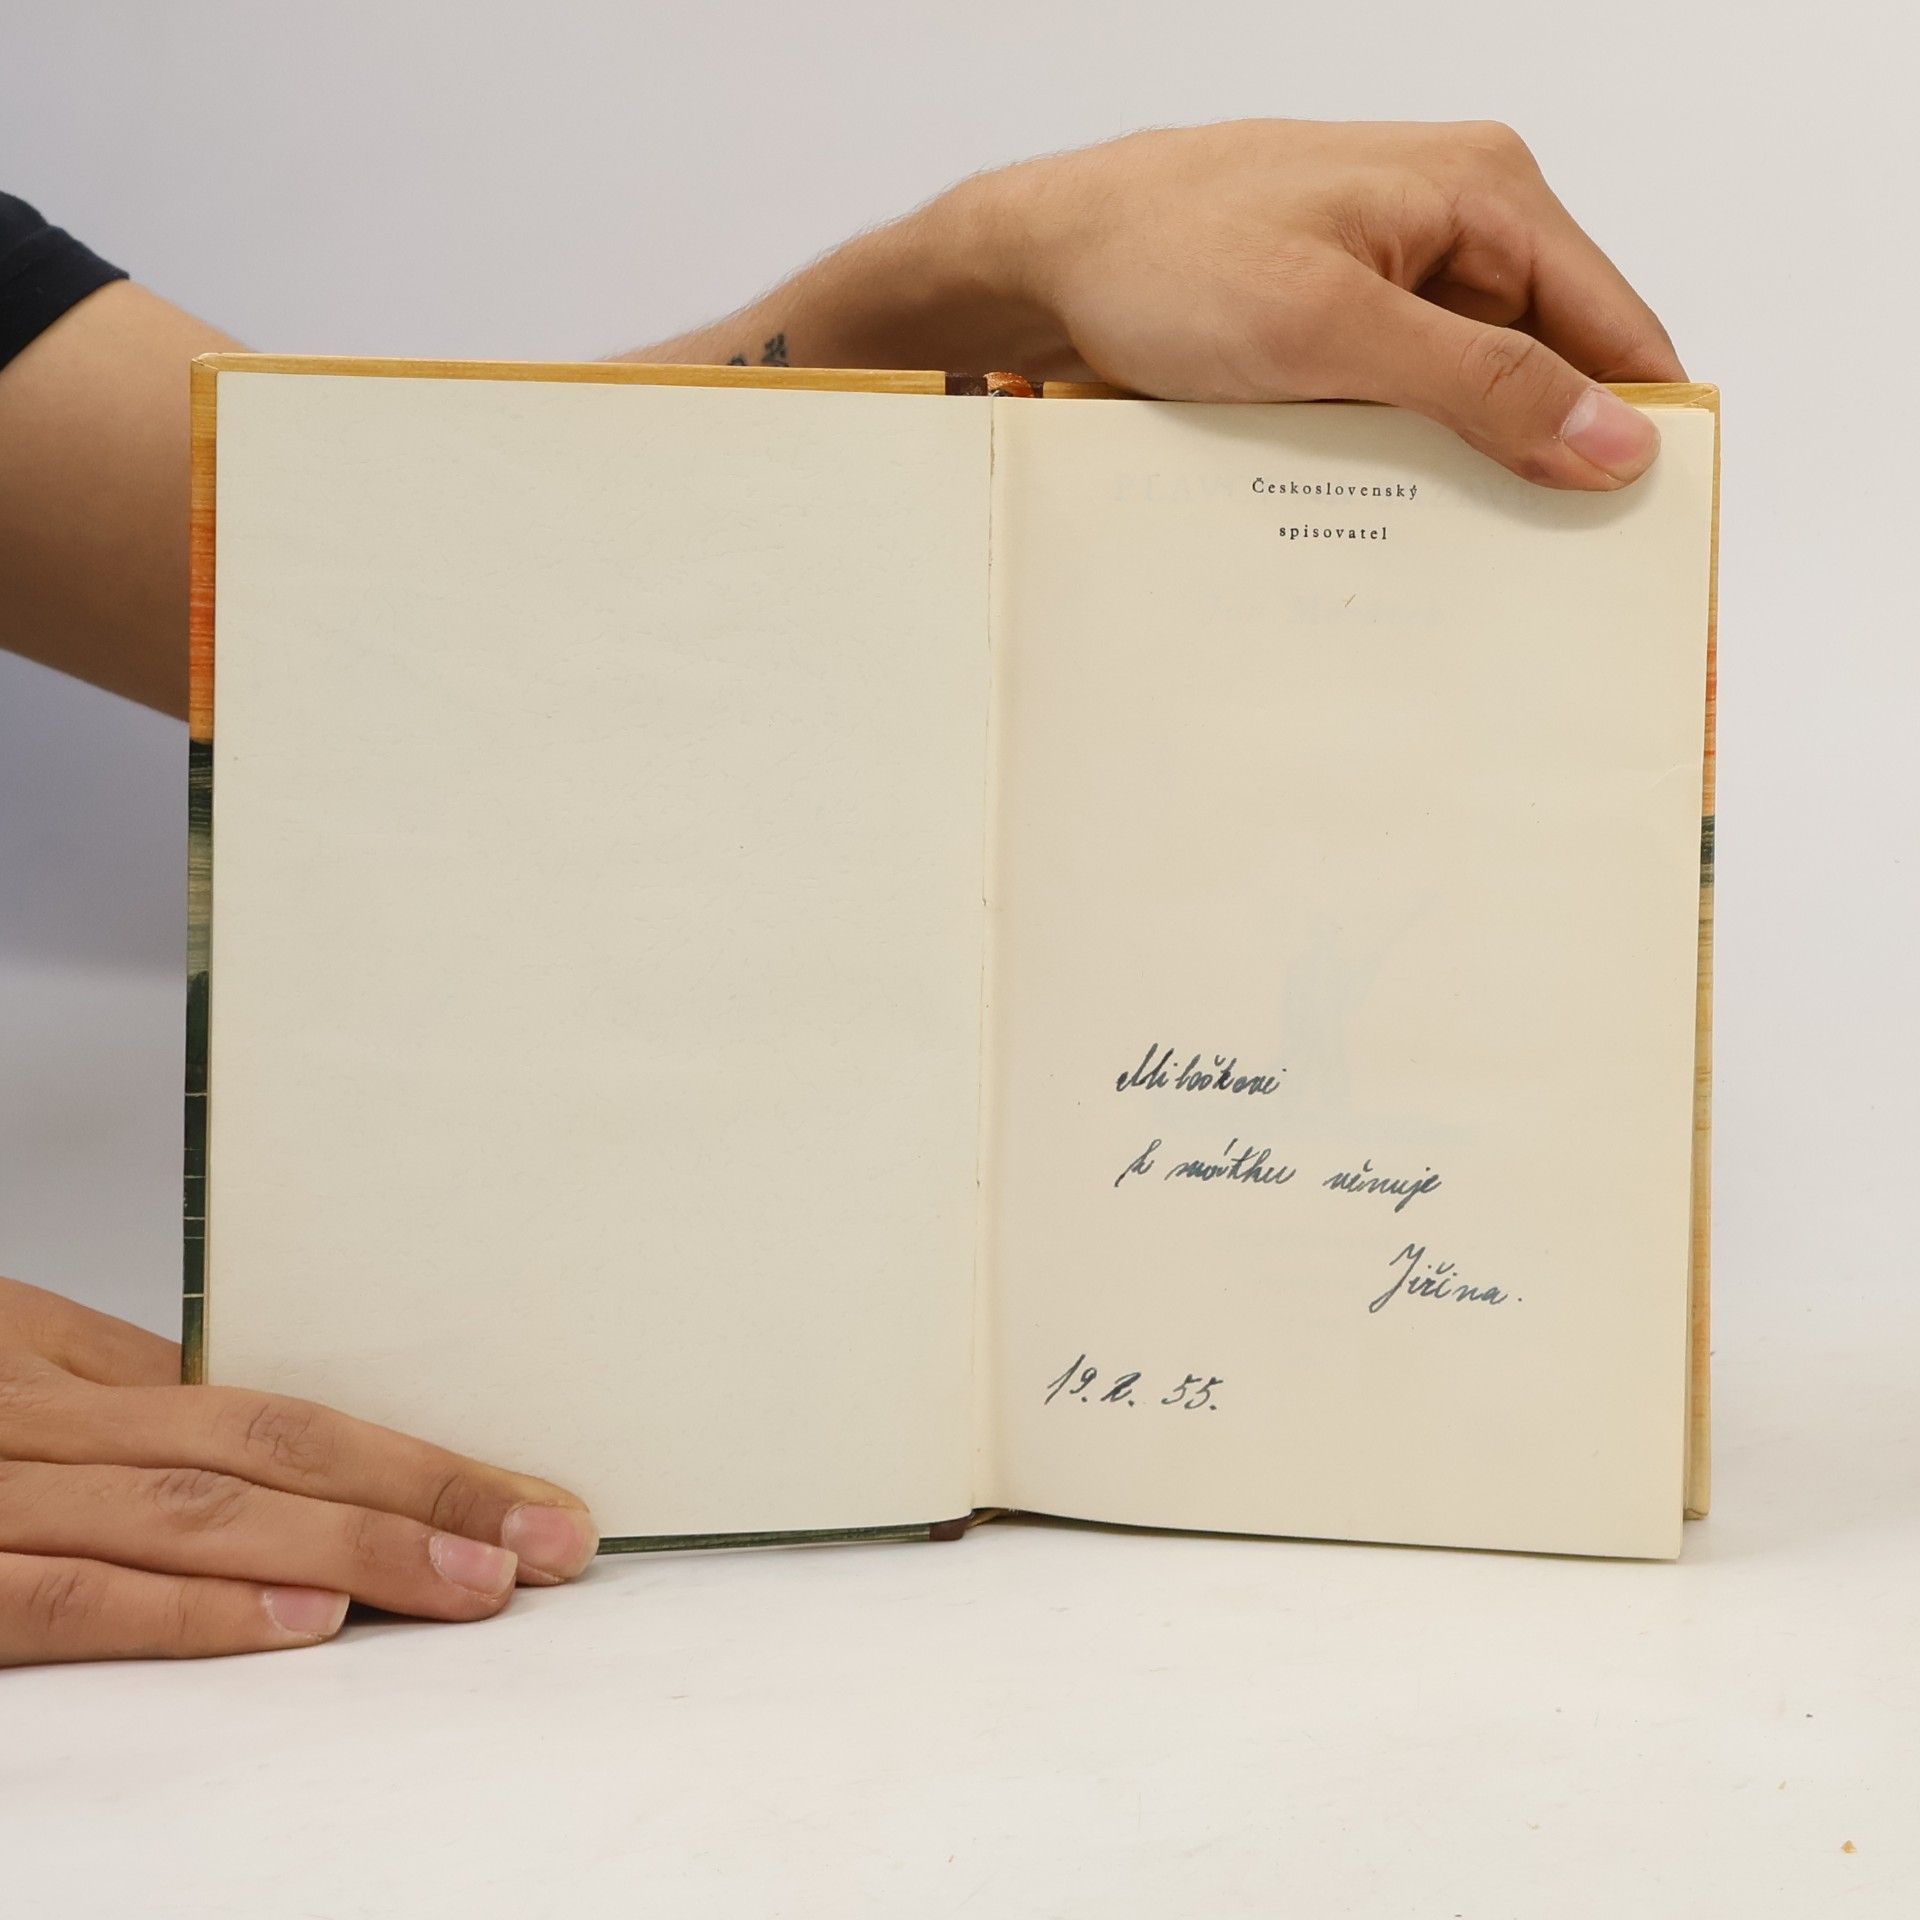 Československý
spisovatel
Miloškovi
k svátku věnuje
Jiřina.
19. 2. 55.